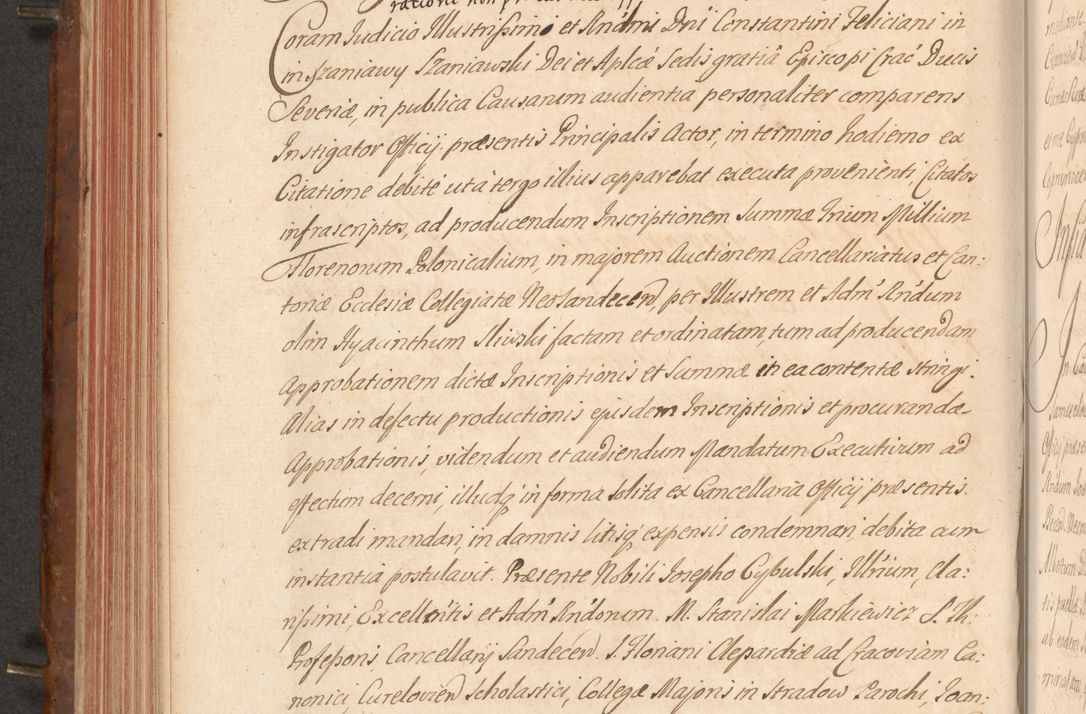 Coram Judicio Illustrissimo et Rndmi Dni Constantini Feliciani in
in Szaniawy Szaniawski Dei et Aplcæ Sedis gratiâ Episcopi Crac Ducis
Severiæ, in publica Causarum audientia personaliter comparens
Instigator Officÿ præsentis Principalis Actor, in termino hodierno ex
Citatione debitè ut à tergo illius apparebat executa provenienti, Citatos
infrascriptos, ad producendum Inscriptionem Summæ Trium Millium
Florenorum Polonicalium, in majorem Auctionem Cancellariatus et Can:
toriæ Ecclesiæ Collegiatæ Neosandecen, per Illustrem et Adm Rndum
olim Hyacinthum Sliwski factam et ordinatam, tum ad producendam
Approbationem dictæ Inscriptionis et Summæ in ea contentæ stringi.
Alias in defectu productionis ejusdem Inscriptionis et procurandæ
Approbationis, videndum et audiendum Mandatum Executivum ad
effectum decerni, illudq in forma solita ex Cancellaria Officÿ præsentis
extradi mandari, in damnis litisq expensis condemnari, debita cum
instantia postulavit. Præsente Nobili Josepho Cybulski, Illrium, Cla:
rissimi, Excellentis et Adm Rndorum M. Stanislai Markiewicz S. Th.
Professoris Cancellarÿ Sandecen. S. Floriani Clepardiæ ad Cracoviam Ca:
nonici, Curelovien Scholastici, Collegæ Majoris in Stradow Parochi, Joan: